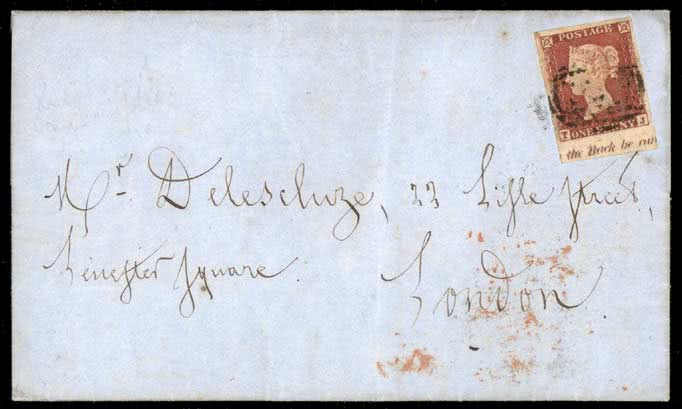 POSTAGE
ONE PENNY
T J
the Back be care
Mr. Delescluze, 22 Lisle Street,
Leinester Square.
London.